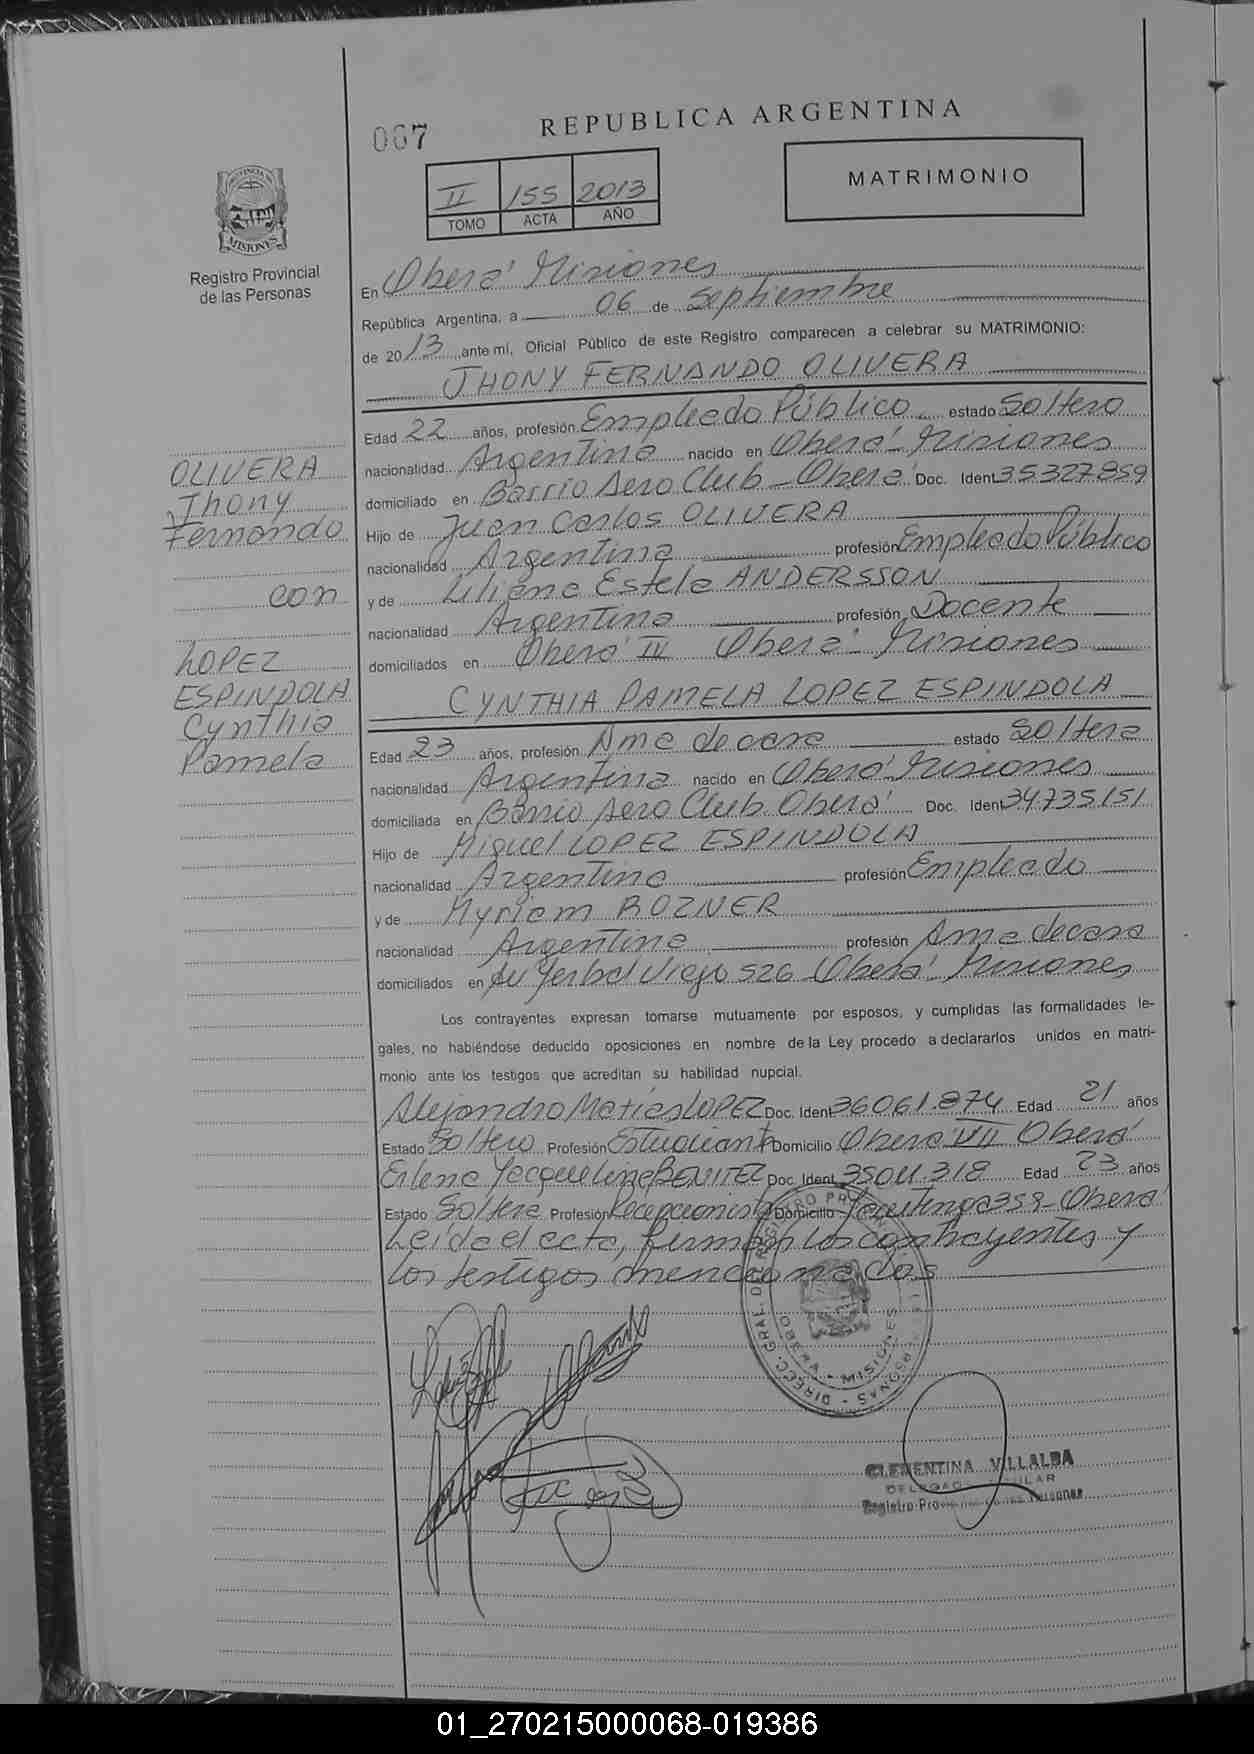 067
REPUBLICA ARGENTINA
MATRIMONIO
II 155 2013
TOMO ACTA AÑO
PROVINCIA DE
MISIONES
Registro Provincial
de las Personas
En Oberá Misiones
República Argentina, a 06 de Septiembre
de 2013 ante mí, Oficial Público de este Registro comparecen a celebrar su MATRIMONIO:
JHONY FERNANDO OLIVERA
Edad 22 años, profesión Empleado Público estado Soltero
nacionalidad Argentina nacido en Oberá - Misiones
domiciliado en Barrio Aero Club - Oberá Doc. Ident 35327859
Hijo de Juan Carlos OLIVERA
nacionalidad Argentina profesión Empleado Público
y de Liliana Estela ANDERSSON
nacionalidad Argentina profesión Docente
domiciliados en Oberá III Oberá - Misiones
OLIVERA
Jhony
Fernando
con
LOPEZ
ESPINDOLA
Cynthia
Pamela
CYNTHIA PAMELA LOPEZ ESPINDOLA
Edad 23 años, profesión Ama de casa estado Soltera
nacionalidad Argentina nacido en Oberá - Misiones
domiciliada en Barrio Aero Club. Oberá Doc. Ident 34735151
Hijo de Miguel LOPEZ ESPINDOLA
nacionalidad Argentino profesión Empleado
y de Myriam ROZNER
nacionalidad Argentina profesión Ama de casa
domiciliados en Av Yerbal Viejo 526 Oberá Misiones
Los contrayentes expresan tomarse mutuamente por esposos, y cumplidas las formalidades le-
gales, no habiéndose deducido oposiciones en nombre de la Ley procedo a declararlos unidos en matri-
monio ante los testigos que acreditan su habilidad nupcial.
Alejandro Matias LOPEZ Doc. Ident 36061.874 Edad 21 años
Estado Soltero Profesión Estudiante Domicilio Oberá VII Oberá
Erlena Jacqueline BENITEZ Doc. Ident 35011318 Edad 23 años
Estado Soltera Profesión Recepcionista Domicilio Yacutinga 359 - Oberá
Leida el acta, firman los contrayentes y
los testigos mencionados
DIRECC. GRAL. DE REGISTRO PR PERSONAS
OBERA - MISIONES
CLEMENTINA VILLALBA
Registro Personas
01_270215000068-019386